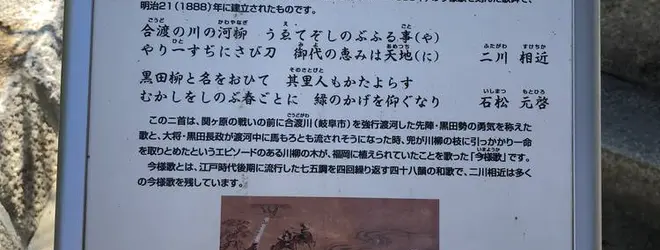 明治21(1888)年に建立されたものです。
合渡の川の河柳　うゑてぞしのぶふる事(や)
やり一すぢにさび刀　御代の恵みは天地(に)　二川　相近
黒田柳と名をおひて　其里人もかたよらす
むかしをしのぶ春ごとに　緑のかげを仰ぐなり　石松　元啓
この二首は、関ヶ原の戦いの前に合渡川(岐阜市)を強行渡河した先陣・黒田勢の勇気を称えた
歌と、大将・黒田長政が渡河中に馬もろとも流されそうになった時、兜が川柳の枝に引っかかり一命
を取りとめたというエピソードのある川柳の木が、福岡に植えられていたことを歌った「今様歌」です。
今様歌とは、江戸時代後期に流行した七五調を四回繰り返す四十八韻の和歌で、二川相近は多く
の今様歌を残しています。